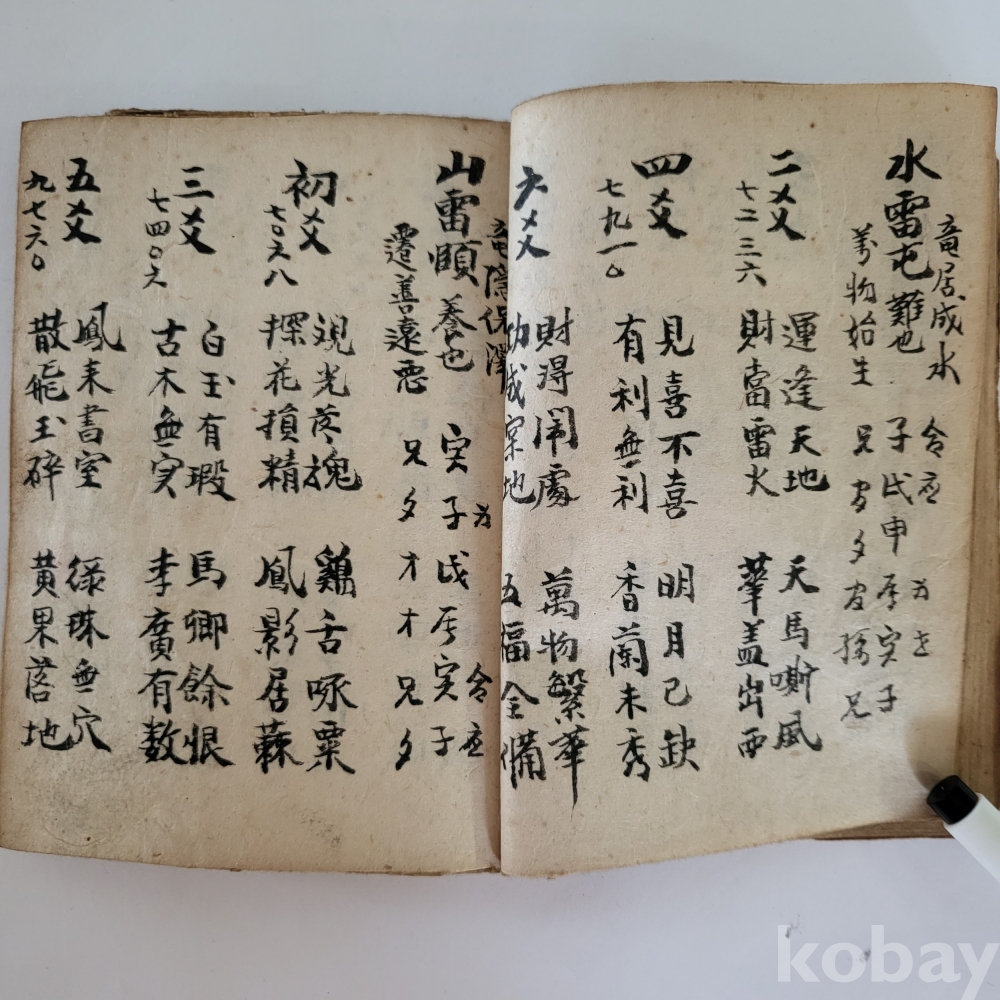 水雷屯 難也
竜居成水
萬物始生
命 应
子戌申辰寅子
兄官夕官孫兄
二爻
七二三六
運逢天地
財當雷火
天馬嘶風
華盖出西
四爻
七九一〇
見喜不喜
有利無利
明月已缺
香蘭未秀
六爻
財得閙處
功成案地
萬物繁華
五福全備
山雷頤 養也
竜隠保澤
遷善遠悪
寅子戌辰寅子
兄夕才才兄夕
命 应
初爻
七〇六八
探花損精
鷄舌啄粟
鳳影居蘇
三爻
七四〇六
白玉有瑕
古木無实
馬卿餘恨
李廣有数
五爻
九七六〇
鳳来書室
散飛玉碎
緑珠無穴
黄果落地
kobay